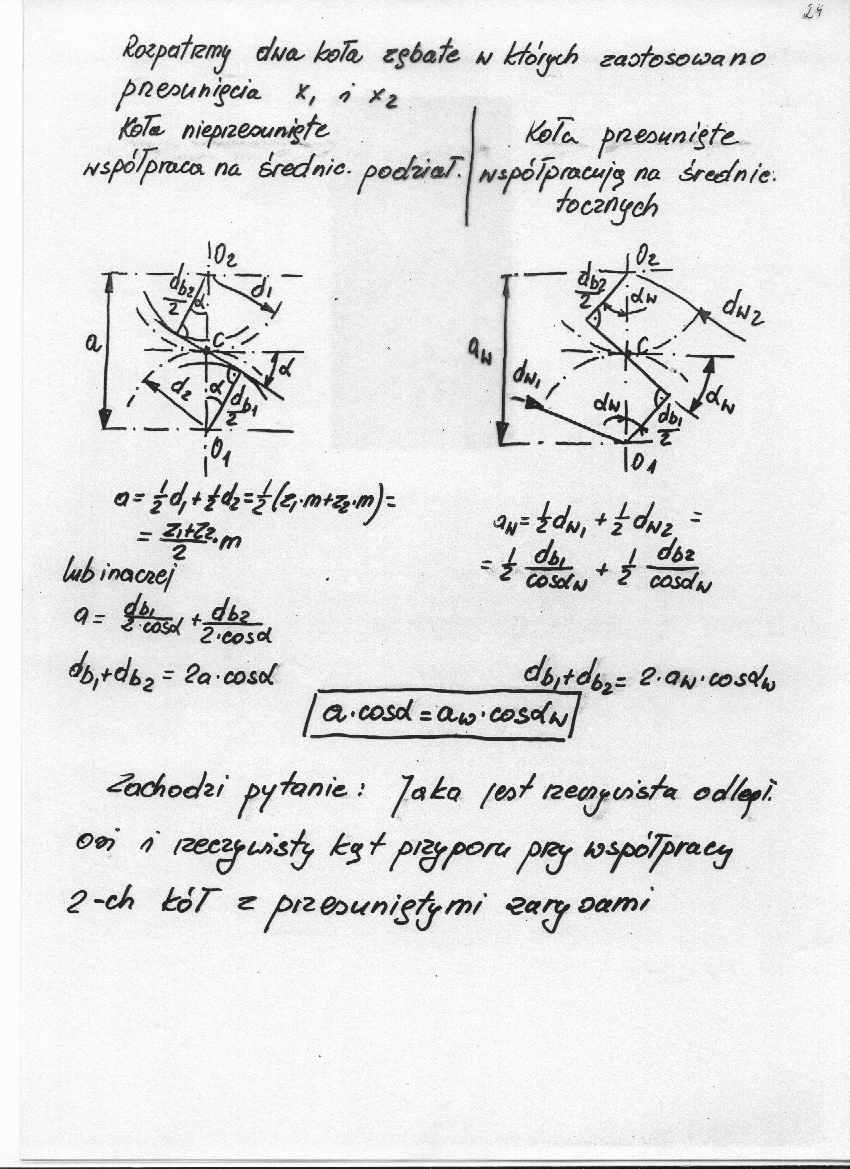 24
Rozpatrzmy dwa koła zębate w których zastosowano
przesunięcia x₁ i x₂
Koła nieprzesunięte
współpraca na średnic. podział.
Koła przesunięte
współpracują na średnic.
tocznych
O₂
d_b2/2
α
d₁
a
C
α
d₂
α
d_b1/2
O₁
O₂
d_b2/2
α_w
d_w2
a_w
C
d_w1
α_w
α_w
d_b1/2
O₁
a = 1/2 d₁ + 1/2 d₂ = 1/2 (z₁·m + z₂·m) =
= (z₁+z₂)/2 · m
lub inaczej
a = d_b1/(2·cosα) + d_b2/(2·cosα)
d_b1 + d_b2 = 2a·cosα
a_w = 1/2 d_w1 + 1/2 d_w2 =
= 1/2 d_b1/cosα_w + 1/2 d_b2/cosα_w
d_b1 + d_b2 = 2·a_w·cosα_w
a·cosα = a_w·cosα_w
Zachodzi pytanie: Jaka jest rzeczywista odległ.
osi i rzeczywisty kąt przyporu przy współpracy
2-ch kół z przesuniętymi zarysami